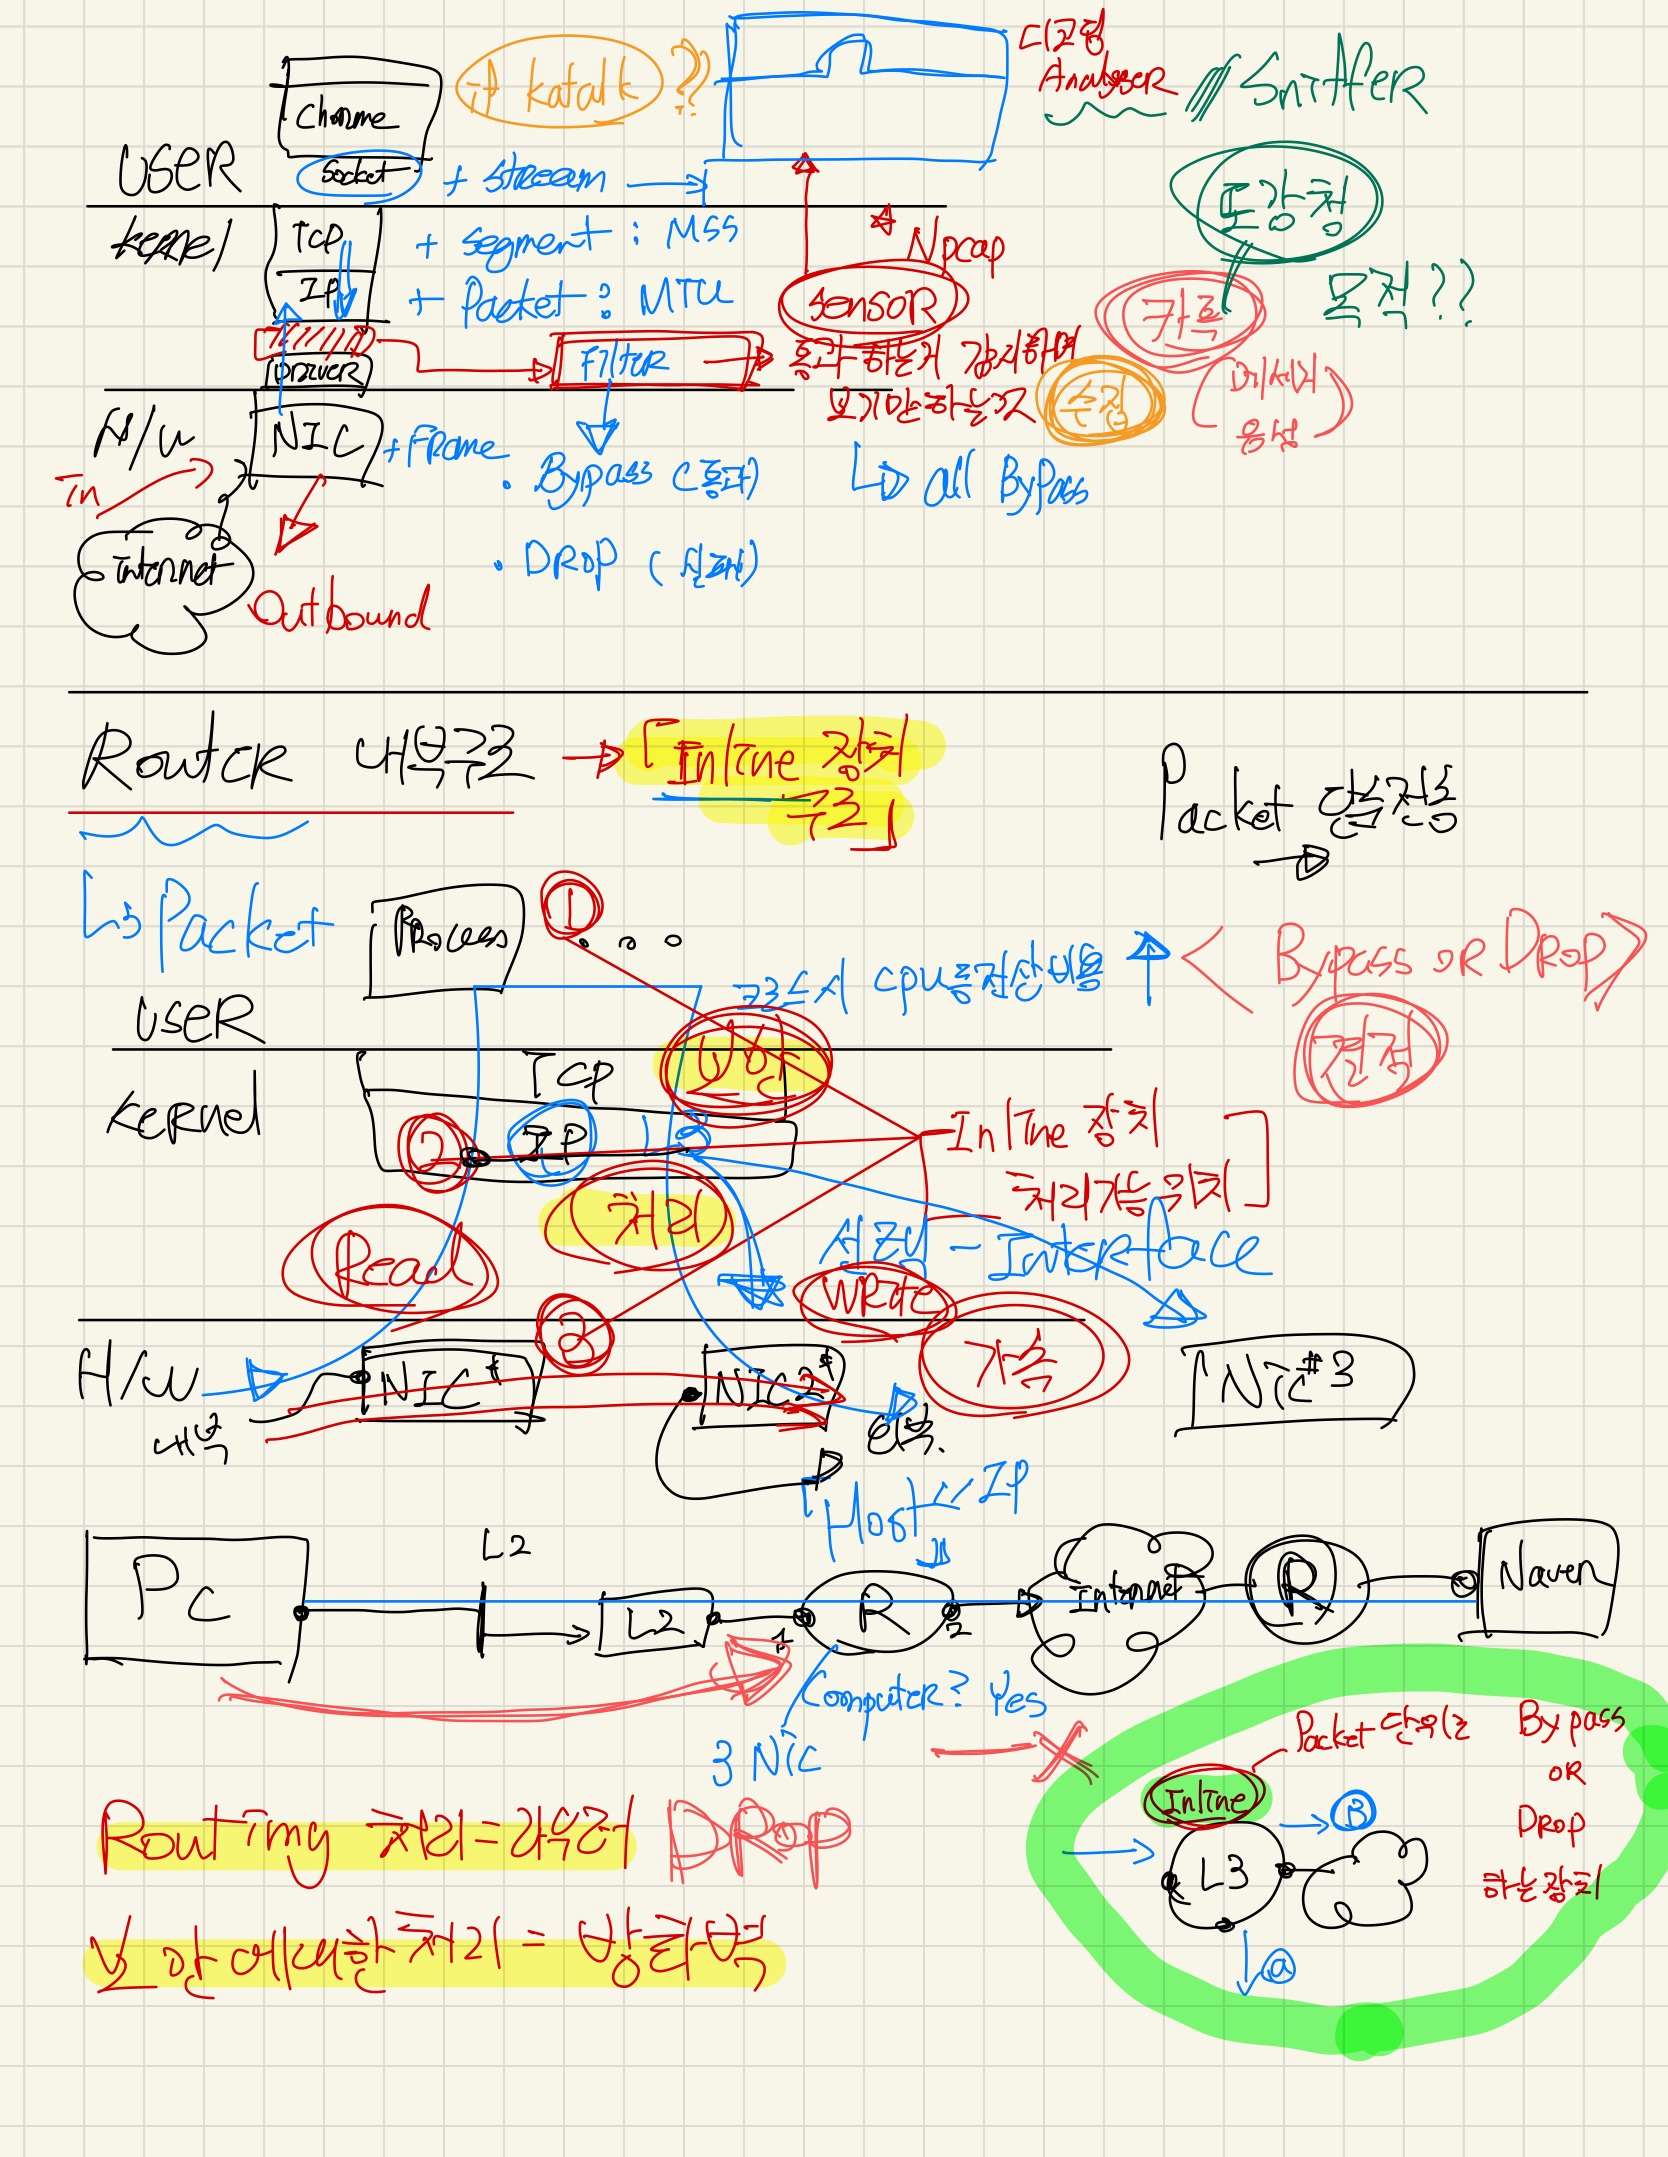 Chrome
# katalk ??
Analyser
Sniffer
USER
socket
+ stream
도청
목적??
Kernel
TCP
+ segment : MSS
Npcap
IP
+ Packet : MTU
SensoR
카톡
Driver
Filter
통과하는거 감지하며
보기만하는것
수집
(메시지
음성)
H/W
NIC
+ Frame
In
. Bypass (통과)
all Bypass
. DROP (삭제)
internet
Outbound
Router 내부구조
「Inline 장치
구조」
Packet
Packet
Process
①
. . .
cpu
Bypass OR DRop
USER
결정
TCP
Kernel
②
IP
Inline 장치
처리가능위치
처리
Read
- Interface
WRite
③
가속
H/W
NIC
NIC 2
NIC#3
내부
외부.
「Host
IP
L2
PC
L2
1
R
2
Internet
R
Naver
Computer? Yes
3 NIC
Packet 단위로
Bypass
OR
DROP
하는장치
Inline
B
L3
a
Routing 처리=라우터
DRop
보안에대한처리 = 방화벽